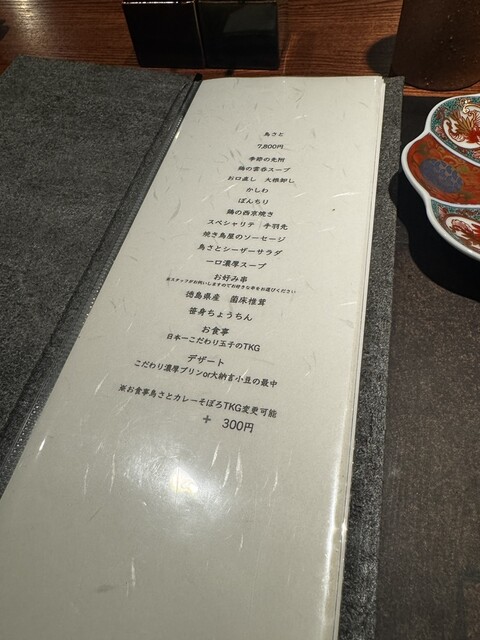 鳥さと
7,800円
季節の先附
鶏の雲呑スープ
お口直し 大根卸し
かしわ
ぼんちり
鶏の西京焼き
スペシャリテ 手羽先
焼き鳥屋のソーセージ
鳥さとシーザーサラダ
一口濃厚スープ
お好み串
※スタッフがお伺いしますのでお好きな串をお選びください
徳島県産 菌床椎茸
笹身ちょうちん
お食事
日本一こだわり玉子のTKG
デザート
こだわり濃厚プリンor大納言小豆の最中
※お食事鳥さとカレーそぼろTKG変更可能
+ 300円